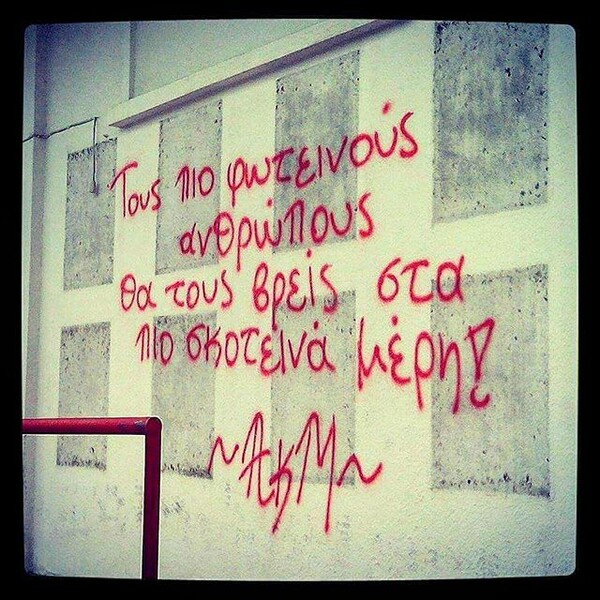 Τους πιο φωτεινούς
ανθρώπους
θα τους βρεις στα
πιο σκοτεινά μέρη!
~ΑκΜ~